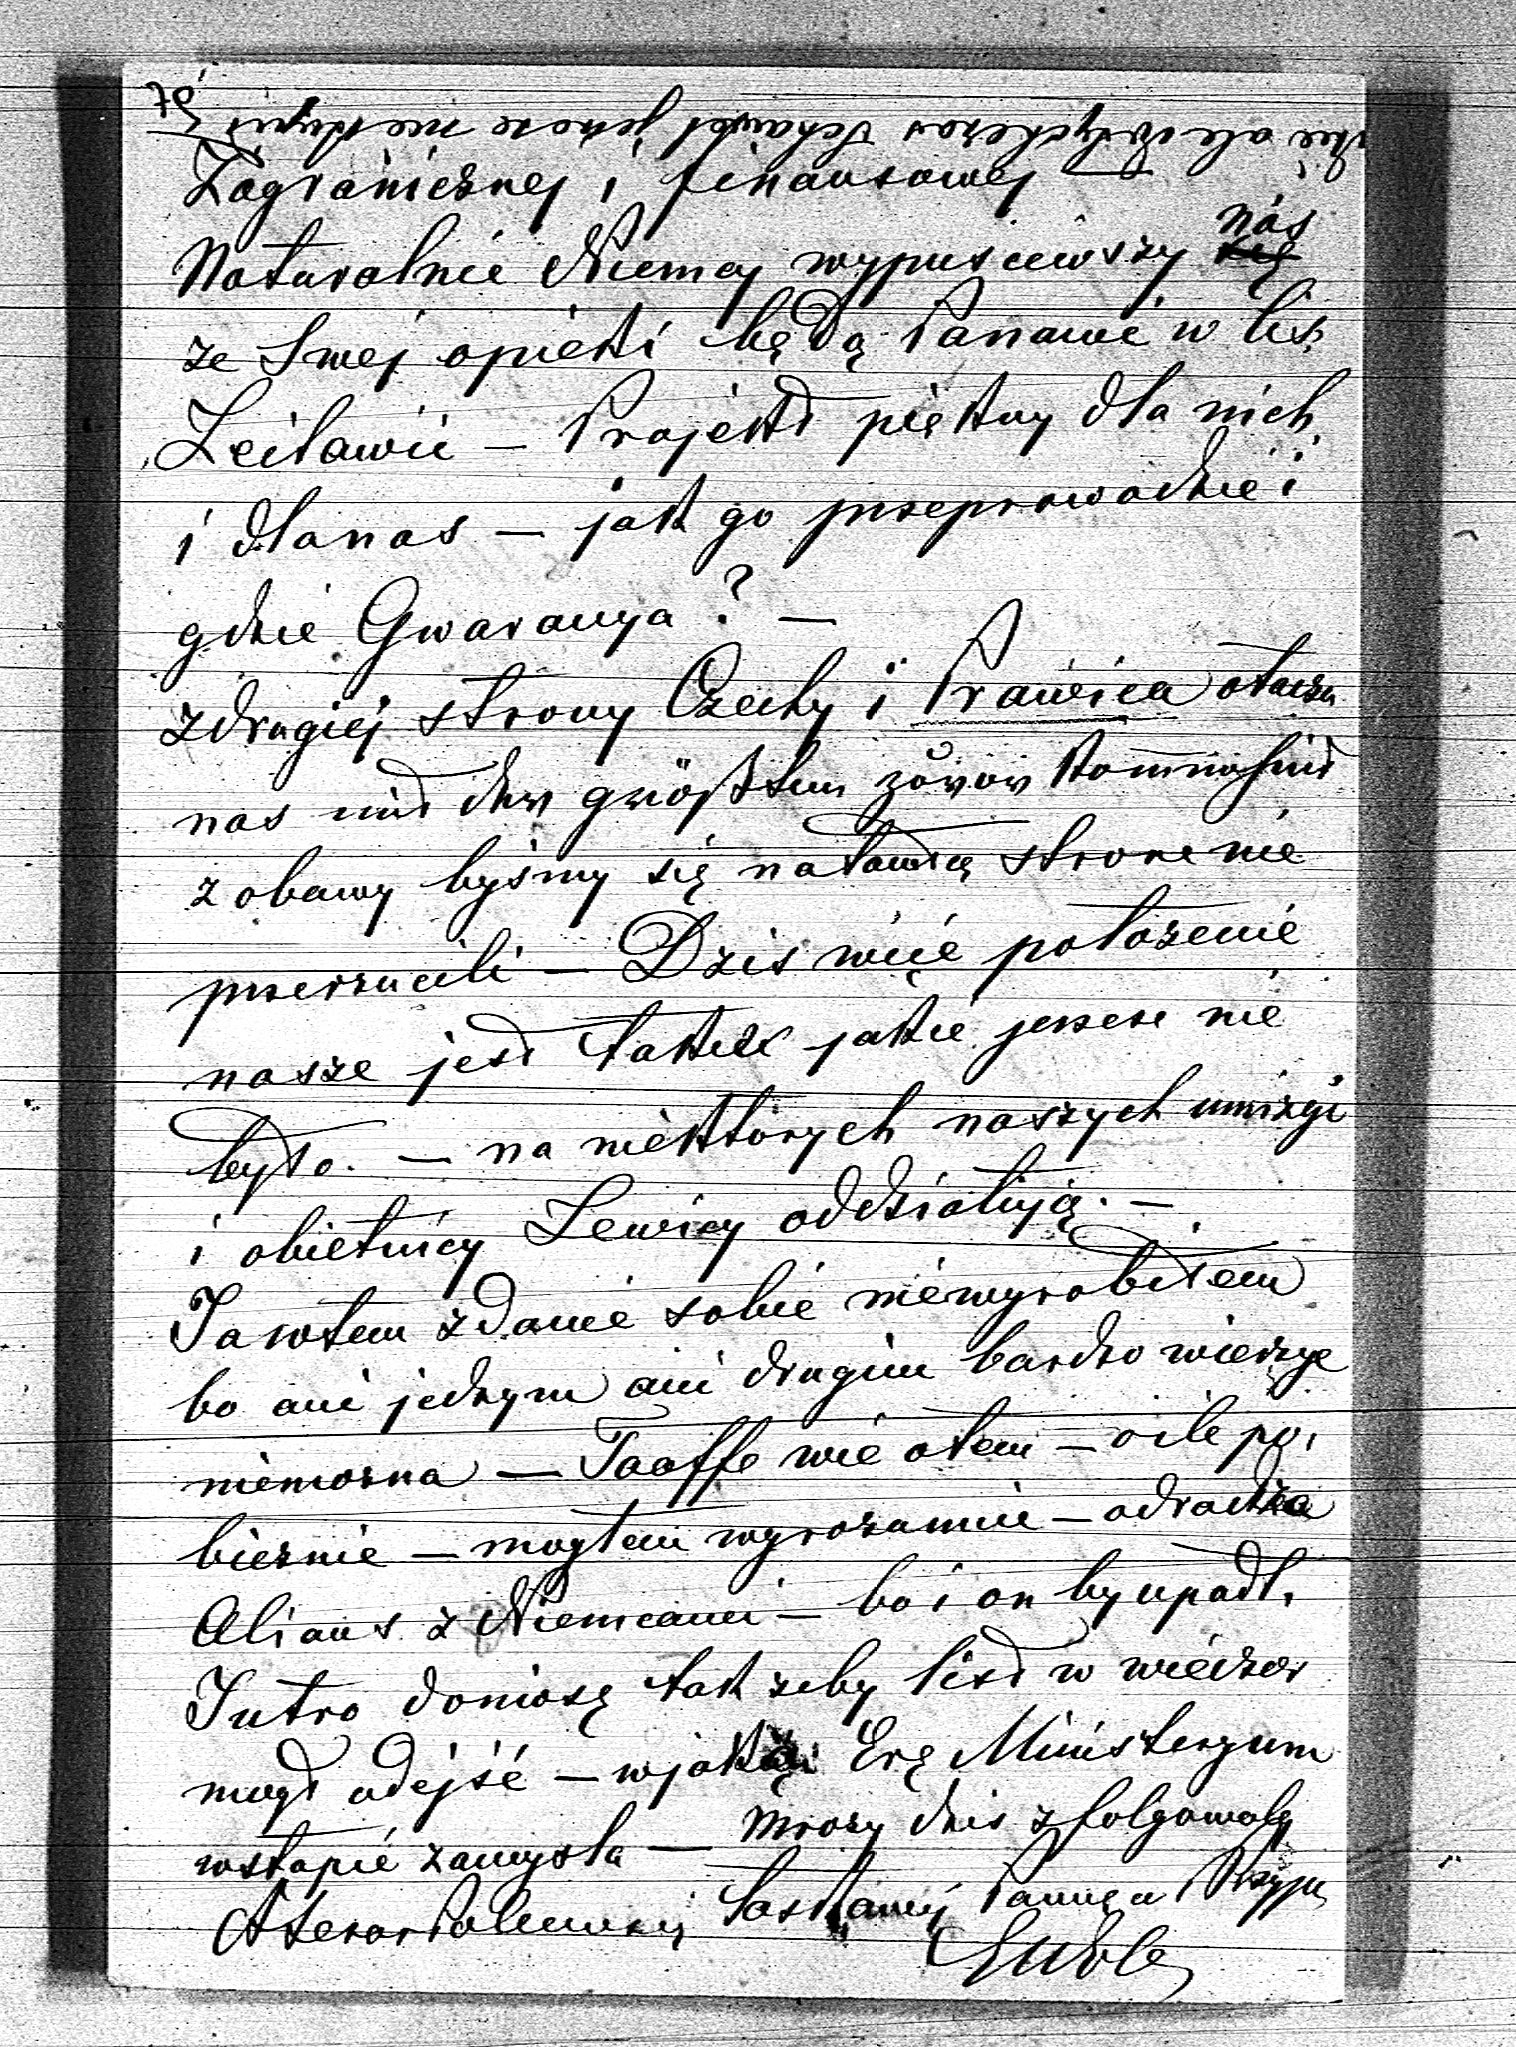 Zagranicznej i finansowej —
Naturalnie Niemcy wypuściwszy nas
ze swej opieki będą Panami w Lis,
Leitawii — Projekt piękny dla nich
i dla nas — jak go przeprowadzić i
gdzie Gwarancya? —
z drugiej strony Czechy i Prawica otacza
nas mit der größten
z obawy byśmy się na tamtą stronę nie
przerzucili — Dziś więc położenie
nasze jest takie jakie jeszcze nie
było. — na niektórych naszych umizgi
i obietnicy Lewicy oddziałują. —
Ja w tem zdanie sobie niewyrobiłem
bo ani jednym ani drugim bardzo wierzyć
niemożna — Taaffe wie o tem — o ile po,
bieżnie — mogłem wyrozumieć — odradza
Alians z Niemcami — bo i on by upadł.
Jutro doniosę tak żeby list w wieczór
mógł odejść — w jaką Erę Ministeryum
wstąpić zamyśla — Mrozy dziś zfolgowały
łaskawej Pamięci